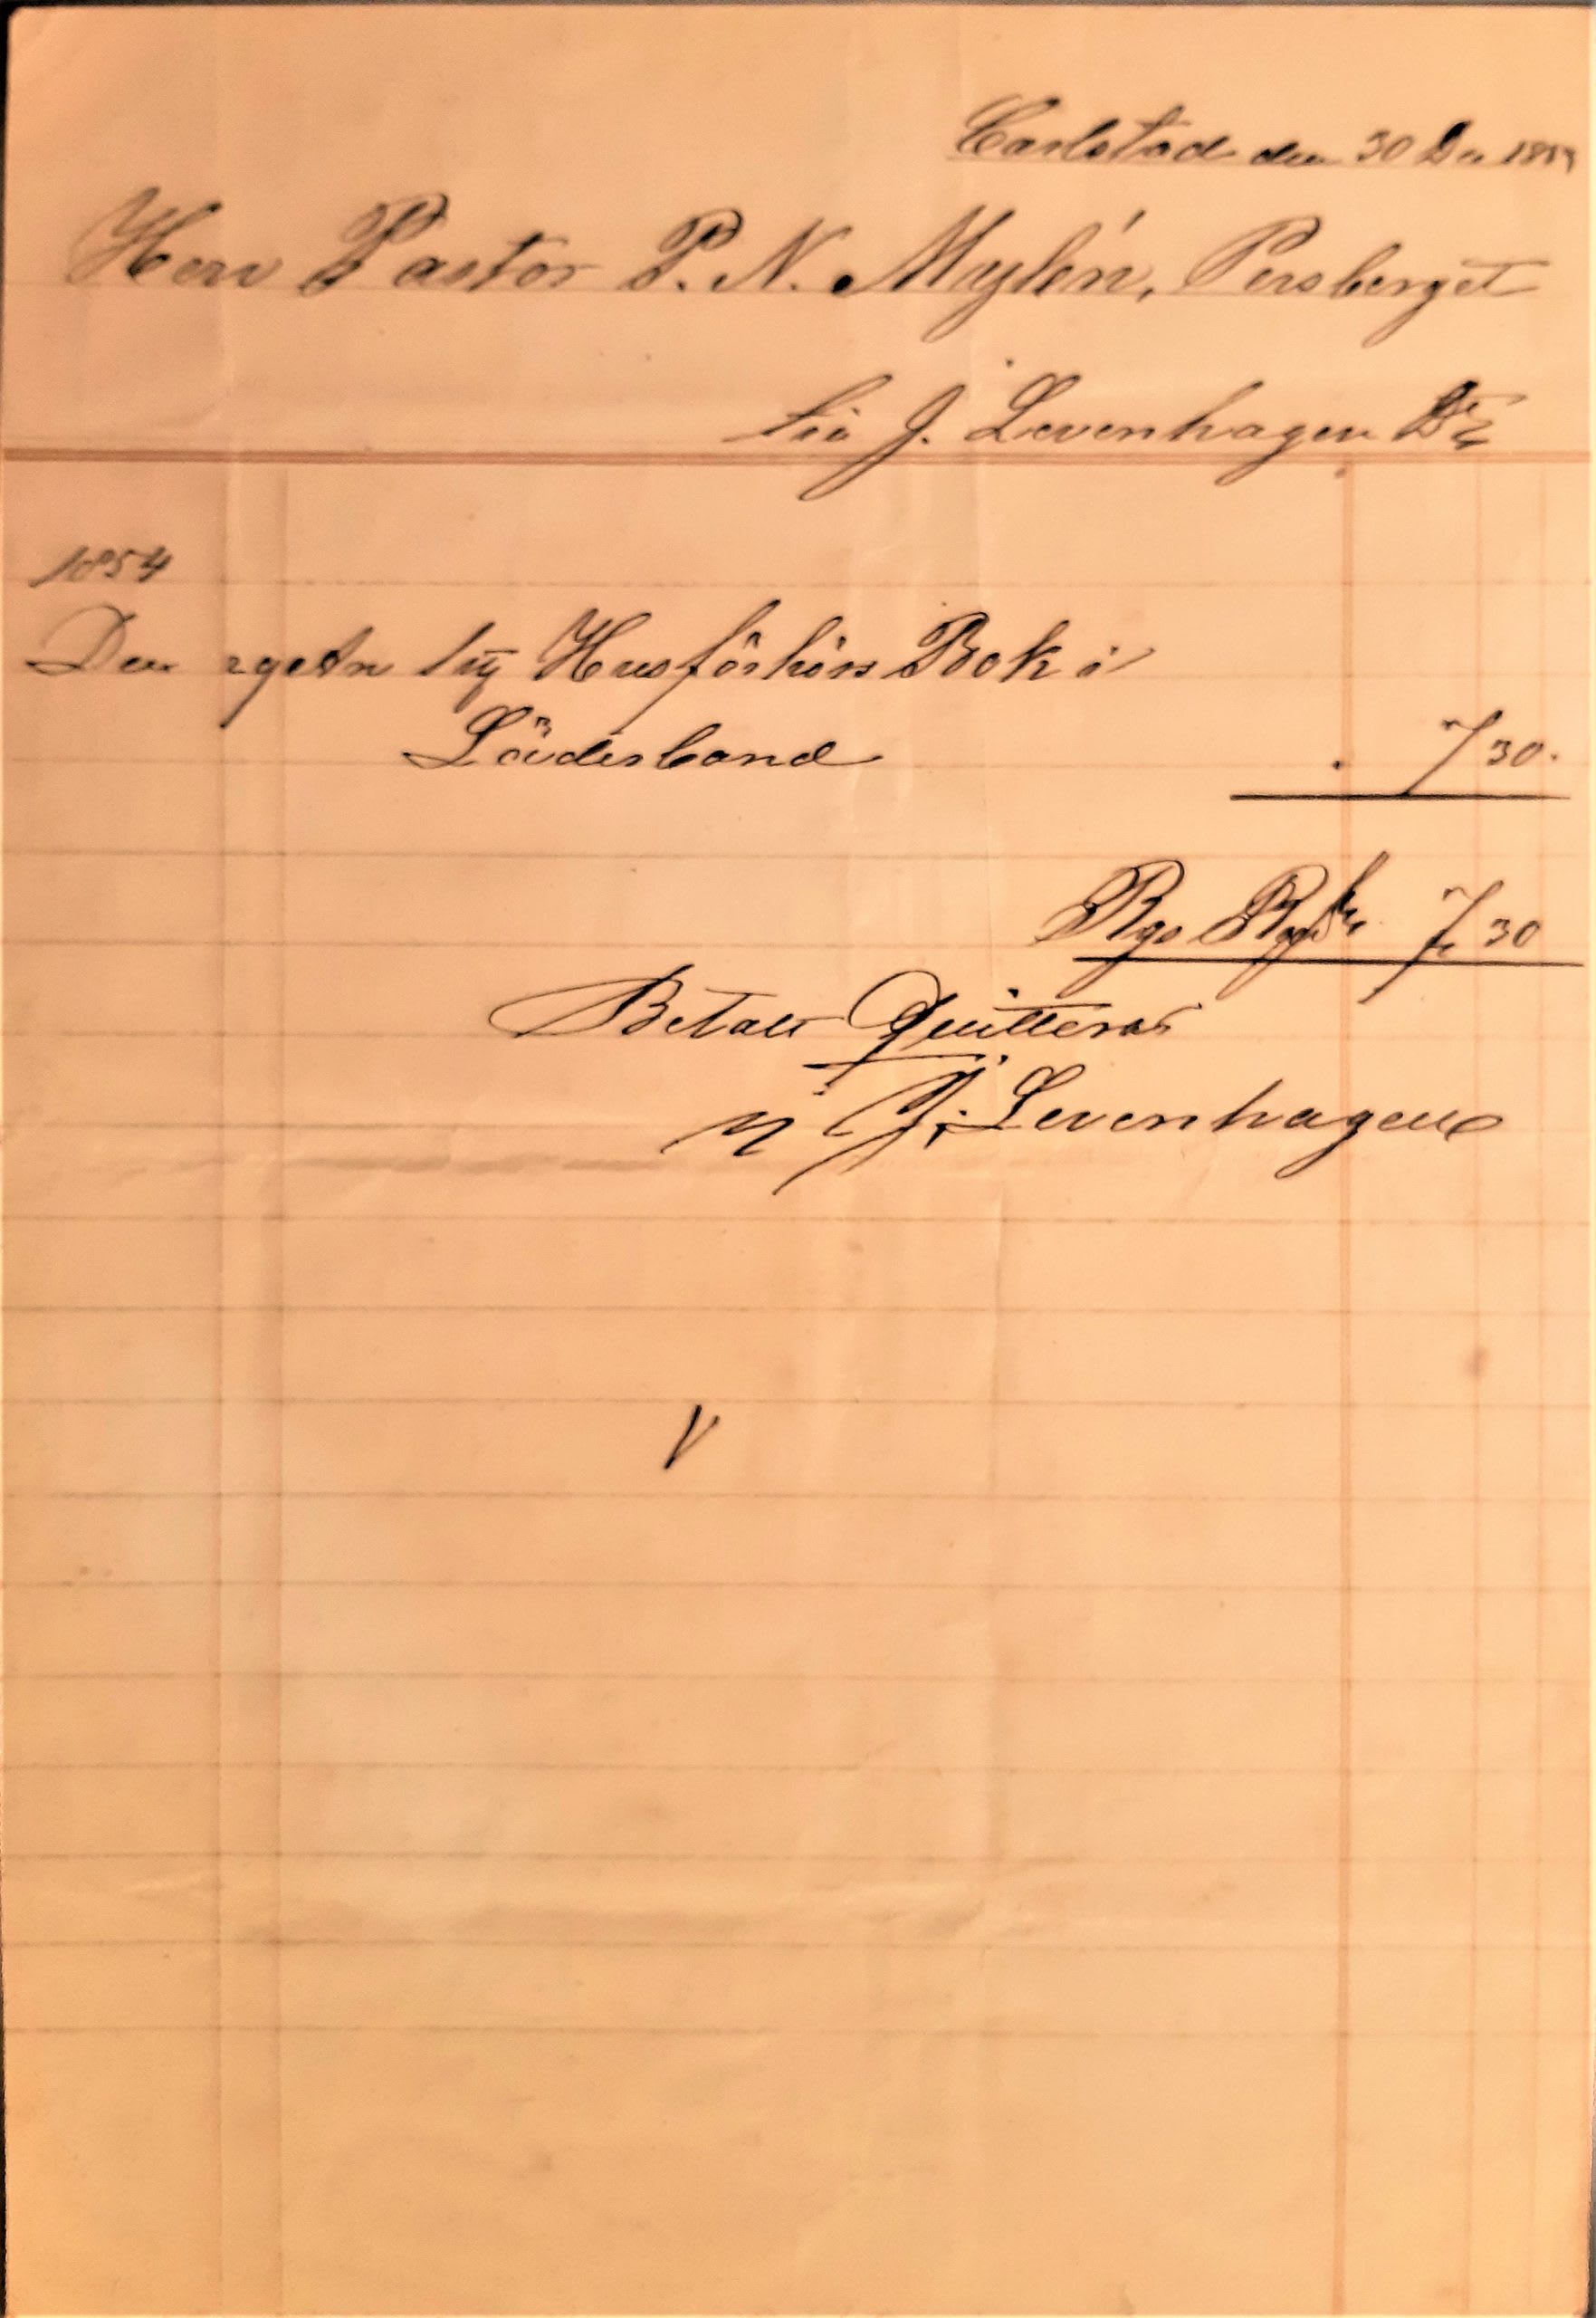 Carlstad den 30 De 1854
Herr Pastor P. N. Mylén, Persberget
till J. Levenhagen Dr
1854
Husförhörs Bok i
Läderband . 7 30.
Rgs 7 30
Betalt Quitteras
J. Levenhagen
V